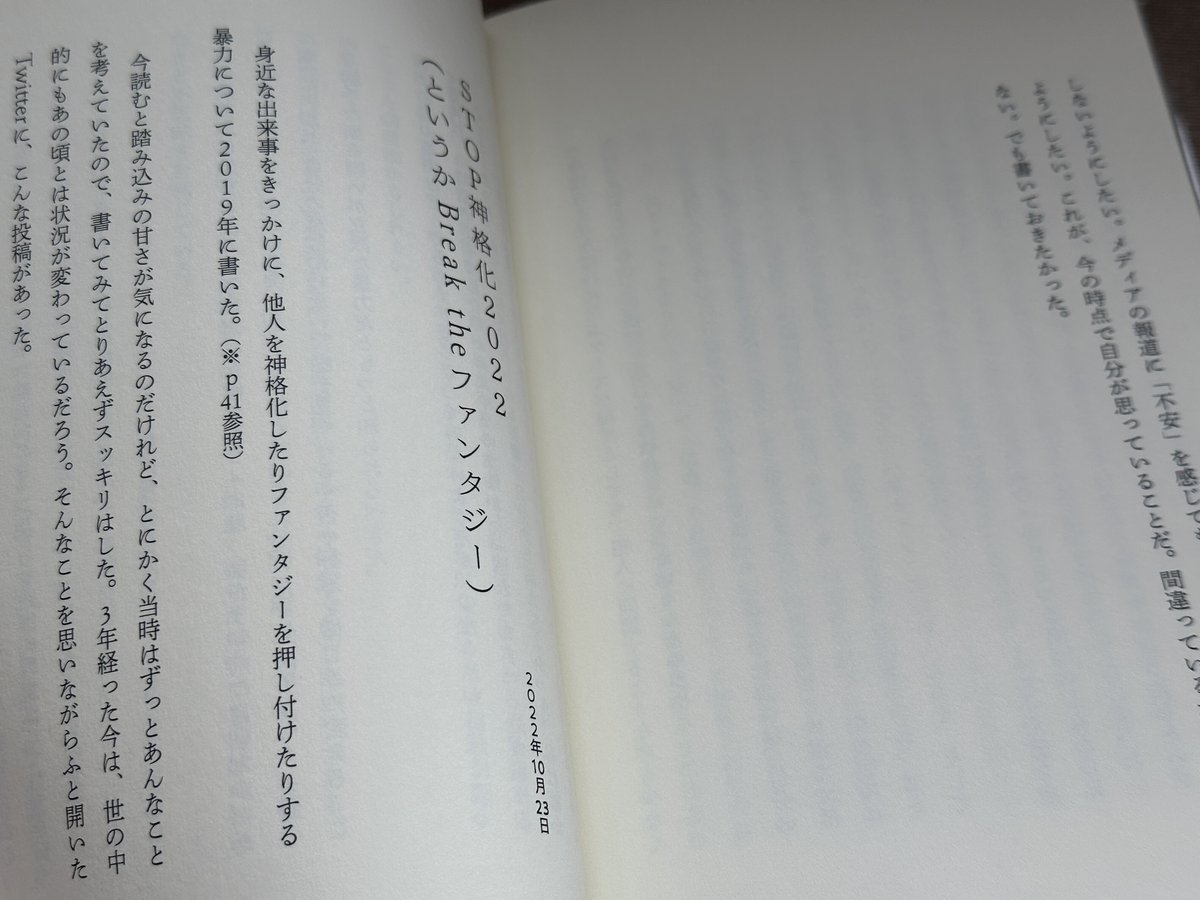 しないようにしたい。メディアの報道に「不安」を感じても
ようにしたい。これが、今の時点で自分が思っていることだ。間違っている
ない。でも書いておきたかった。
2022年10月23日
STOP神格化2022
(というか Break the ファンタジー)
身近な出来事をきっかけに、他人を神格化したりファンタジーを押し付けたりする
暴力について2019年に書いた。(※p41参照)
今読むと踏み込みの甘さが気になるのだけれど、とにかく当時はずっとあんなこと
を考えていたので、書いてみてとりあえずスッキリはした。3年経った今は、世の中
的にもあの頃とは状況が変わっているだろう。そんなことを思いながらふと開いた
Twitterに、こんな投稿があった。